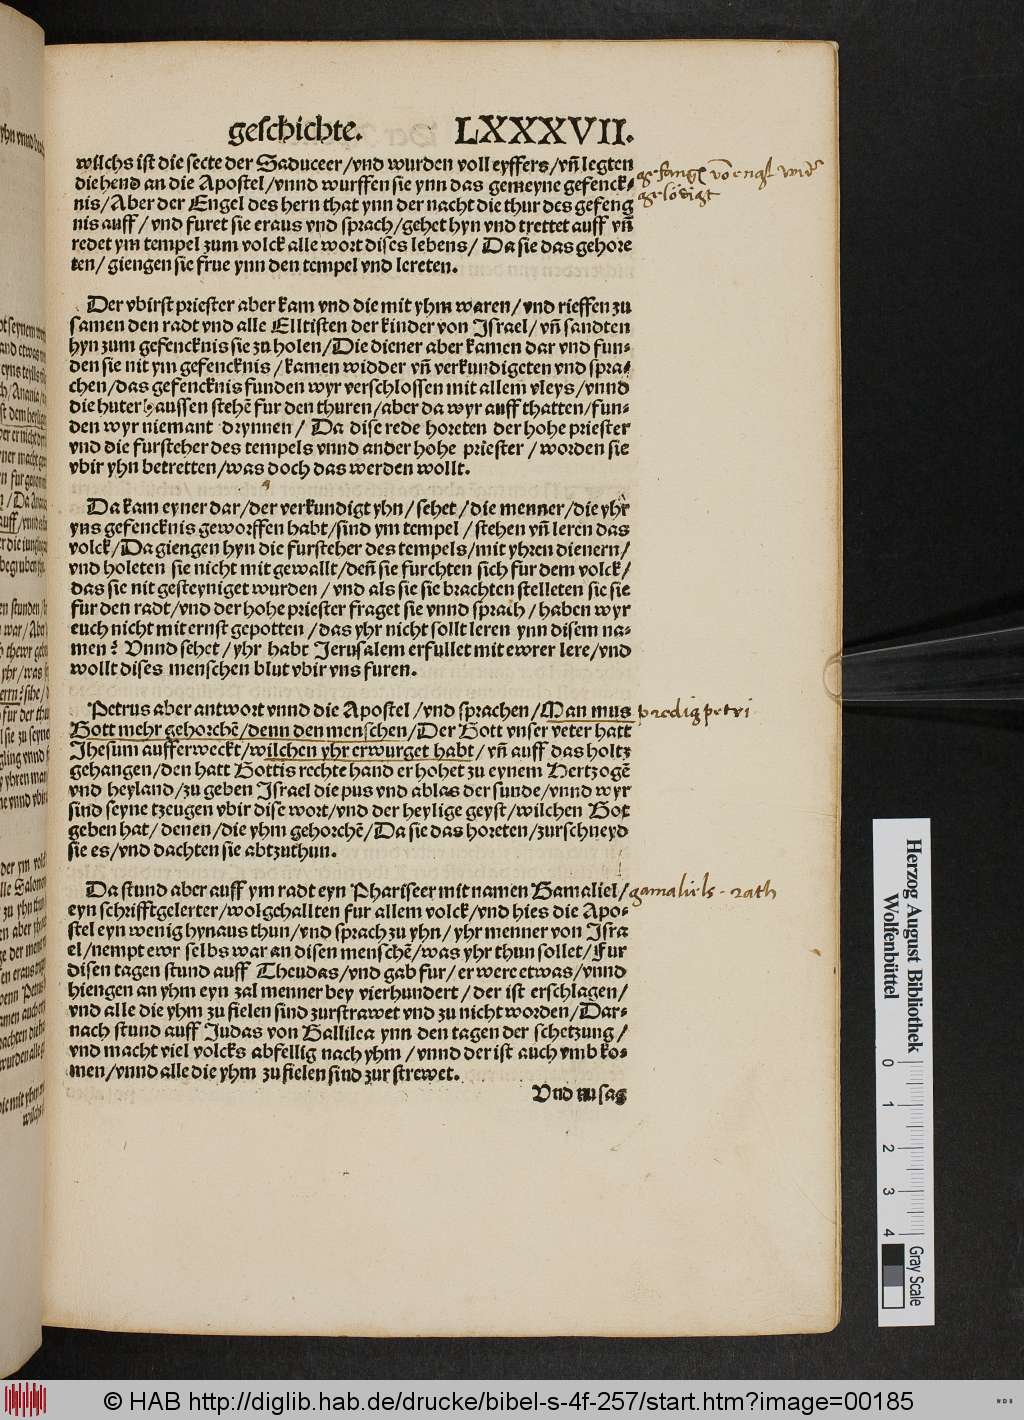 geschichte. LXXXVII.
wilchs ist die secte der Saduceer/vnd wurden voll eyffers/vñ legten
die hend an die Apostel/vnnd wurffen sie ynn das gemeyne gefenck-
nis/Aber der Engel des hern that ynn der nacht die thur des gefeng
nis auff/vnd furet sie eraus vnd sprach/gehet hyn vnd trettet auff vñ
redet ym tempel zum volck alle wort dises lebens/Da sie das gehore
ten/giengen sie frue ynn den tempel vnd lereten.
gelösigt
Der vbirst priester aber kam vnd die mit yhm waren/vnd rieffen zu
samen den radt vnd alle Elltisten der kinder von Israel/vñ sandten
hyn zum gefencknis sie zu holen/Die diener aber kamen dar vnd fun-
den sie nit ym gefencknis/kamen widder vñ verkundigeten vnd spra-
chen/das gefencknis funden wyr verschlossen mit allem vleys/vnnd
die huter haussen stehẽ fur den thuren/aber da wyr auff thatten/fun-
den wyr niemant drynnen/Da dise rede horeten der hohe priester
vnd die fursteher des tempels vnnd ander hohe priester/worden sie
vbir yhn betretten/was doch das werden wollt.
Da kam eyner dar/der verkundigt yhn/sehet/die menner/die yhr
yns gefencknis geworffen habt/sind ym tempel/stehen vñ leren das
volck/Da giengen hyn die fursteher des tempels/mit yhren dienern/
vnd holeten sie nicht mit gewallt/deñ sie furchten sich fur dem volck/
das sie nit gesteyniget wurden/vnd als sie sie brachten stelleten sie sie
fur den radt/vnd der hohe priester fraget sie vnnd sprach/haben wyr
euch nicht mit ernst gepotten/das yhr nicht sollt leren ynn disem na-
men? Vnnd sehet/yhr habt Jerusalem erfullet mit ewrer lere/vnd
wollt dises menschen blut vbir vns furen.
Petrus aber antwort vnnd die Apostel/vnd sprachen/Man mus
predig petri
Gott mehr gehorchẽ/denn den menschen/Der Gott vnser veter hatt
Jhesum aufferweckt/wilchen yhr erwurget habt/vñ auff das holtz
gehangen/den hatt Gottis rechte hand erhohet zu eynem Hertzogẽ
vnd heyland/zu geben Israel die pus vnd ablas der sunde/vnnd wyr
sind seyne tzeugen vbir dise wort/vnd der heylige geyst/wilchen Got
geben hat/denen/die yhm gehorchẽ/Da sie das horeten/zurschneyd
sie es/vnd dachten sie abtzuthun.
Da stund aber auff ym radt eyn Phariseer mit namen Gamaliel/
gamaliels rath
eyn schrifftgelerter/wolgehallten fur allem volck/vnd hies die Apo-
stel eyn wenig hynaus thun/vnd sprach zu yhn/yhr menner von Isra
el/nempt ewr selbs war an disen menschẽ/was yhr thun sollet/Fur
disen tagen stund auff Theudas/vnd gab fur/er were etwas/vnnd
hiengen an yhm eyn zal menner bey vierhundert/der ist erschlagen/
vnd alle die yhm zu fielen sind zurstrawet vnd zu nicht worden/Dar-
nach stund auff Judas von Gallilea ynn den tagen der schetzung/
vnd macht viel volcks abfellig nach yhm/vnnd der ist auch vmb ko-
men/vnnd alle die yhm zu fielen sind zurstrewet.
Vnd nu sag
Herzog August Bibliothek
Wolfenbüttel
0 1 2 3 4
Gray Scale
© HAB http://diglib.hab.de/drucke/bibel-s-4f-257/start.htm?image=00185